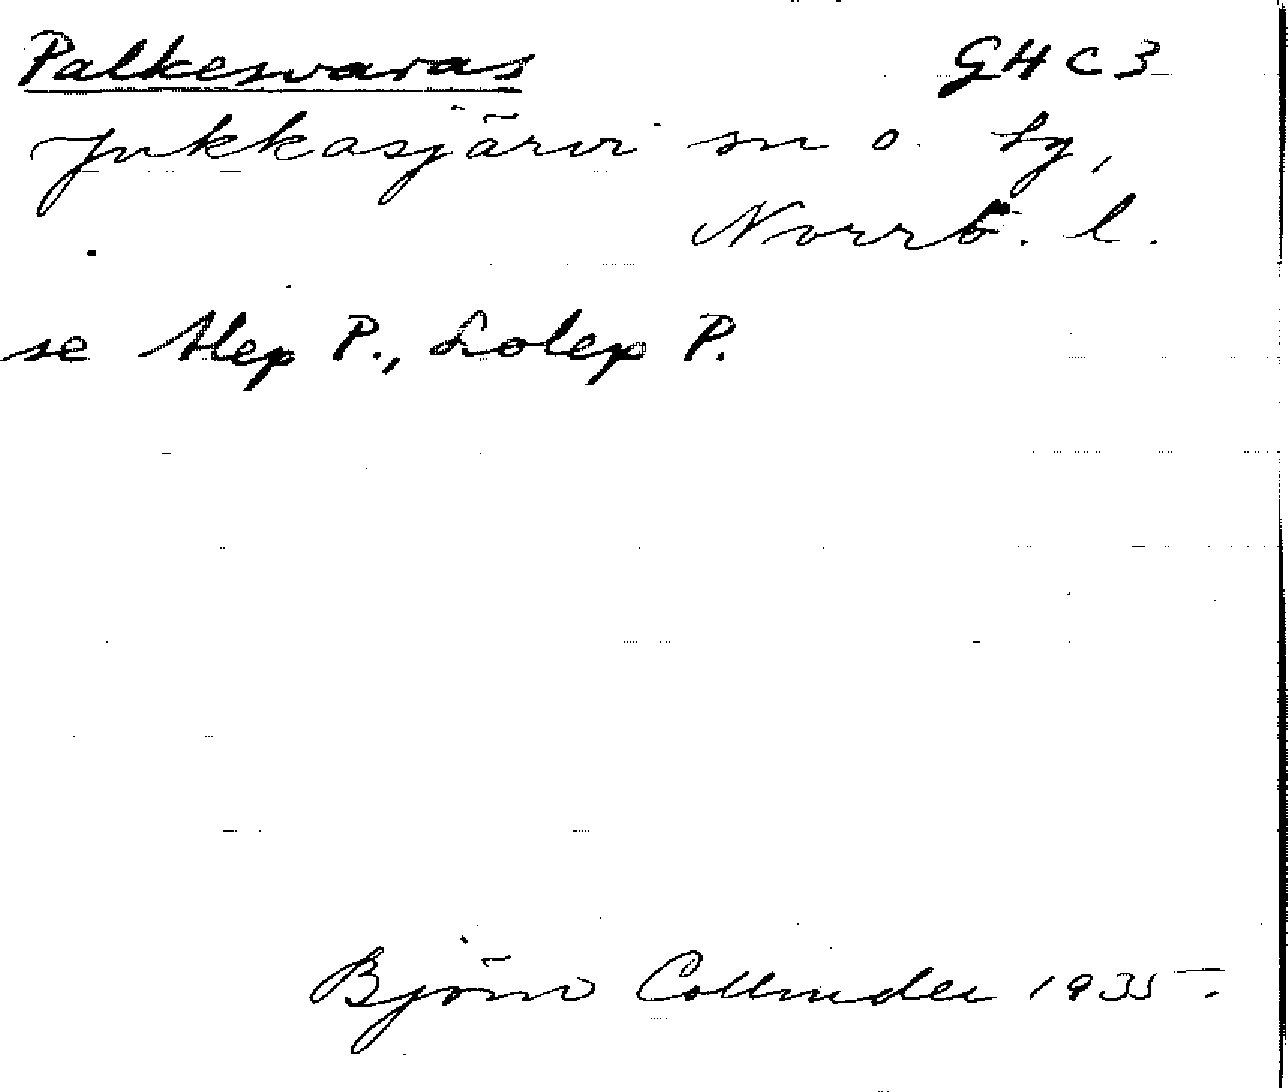 Palkesvaras G4c3
Jukkasjärvi sn o. tg,
Norrb. l.
se Alep P., Lolep P.
Björn Collinder 1935.